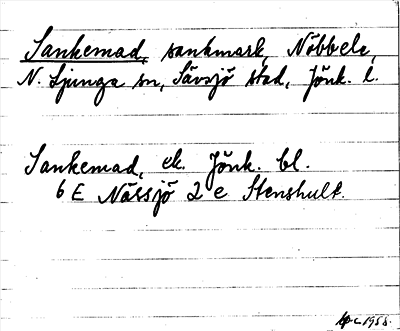 Sankemad, sankmark, Nöbbele,
N. Ljunga sn, Sävsjö stad, Jönk. l.
Sankemad, ek. Jönk. bl.
6 E Nässjö 2 e Stenshult.
1958.